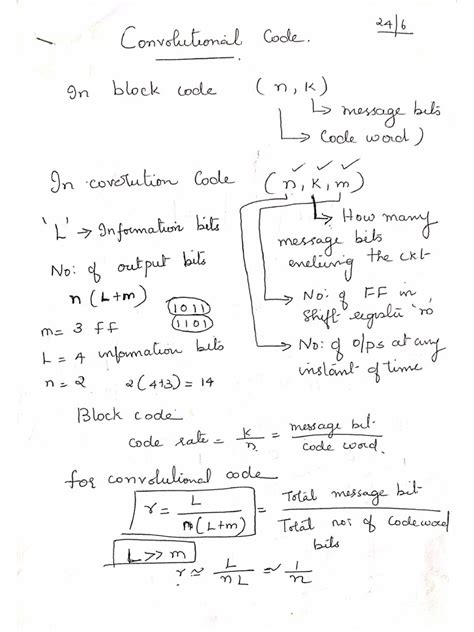 24/6
Convolutional Code.
In block code (n, k)
↳ message bits
↳ Code word)
In covolution Code (n, k, m)
'L' → Information bits
↳ How many
message bits
the ckt
No: of output bits
n(L+m)
→ No: of FF in
shift
1011
1101
m= 3 ff
L = 4 information bits
→ No: of o/ps at any
instant of time
n = 2 2(4+3) = 14
Block code
code rate = k/n = message bit / code word.
for convolutional code
r = L / n(L+m) = Total message bit / Total no: of codeword bits
L >> m
r ≃ L / nL ≃ 1/n